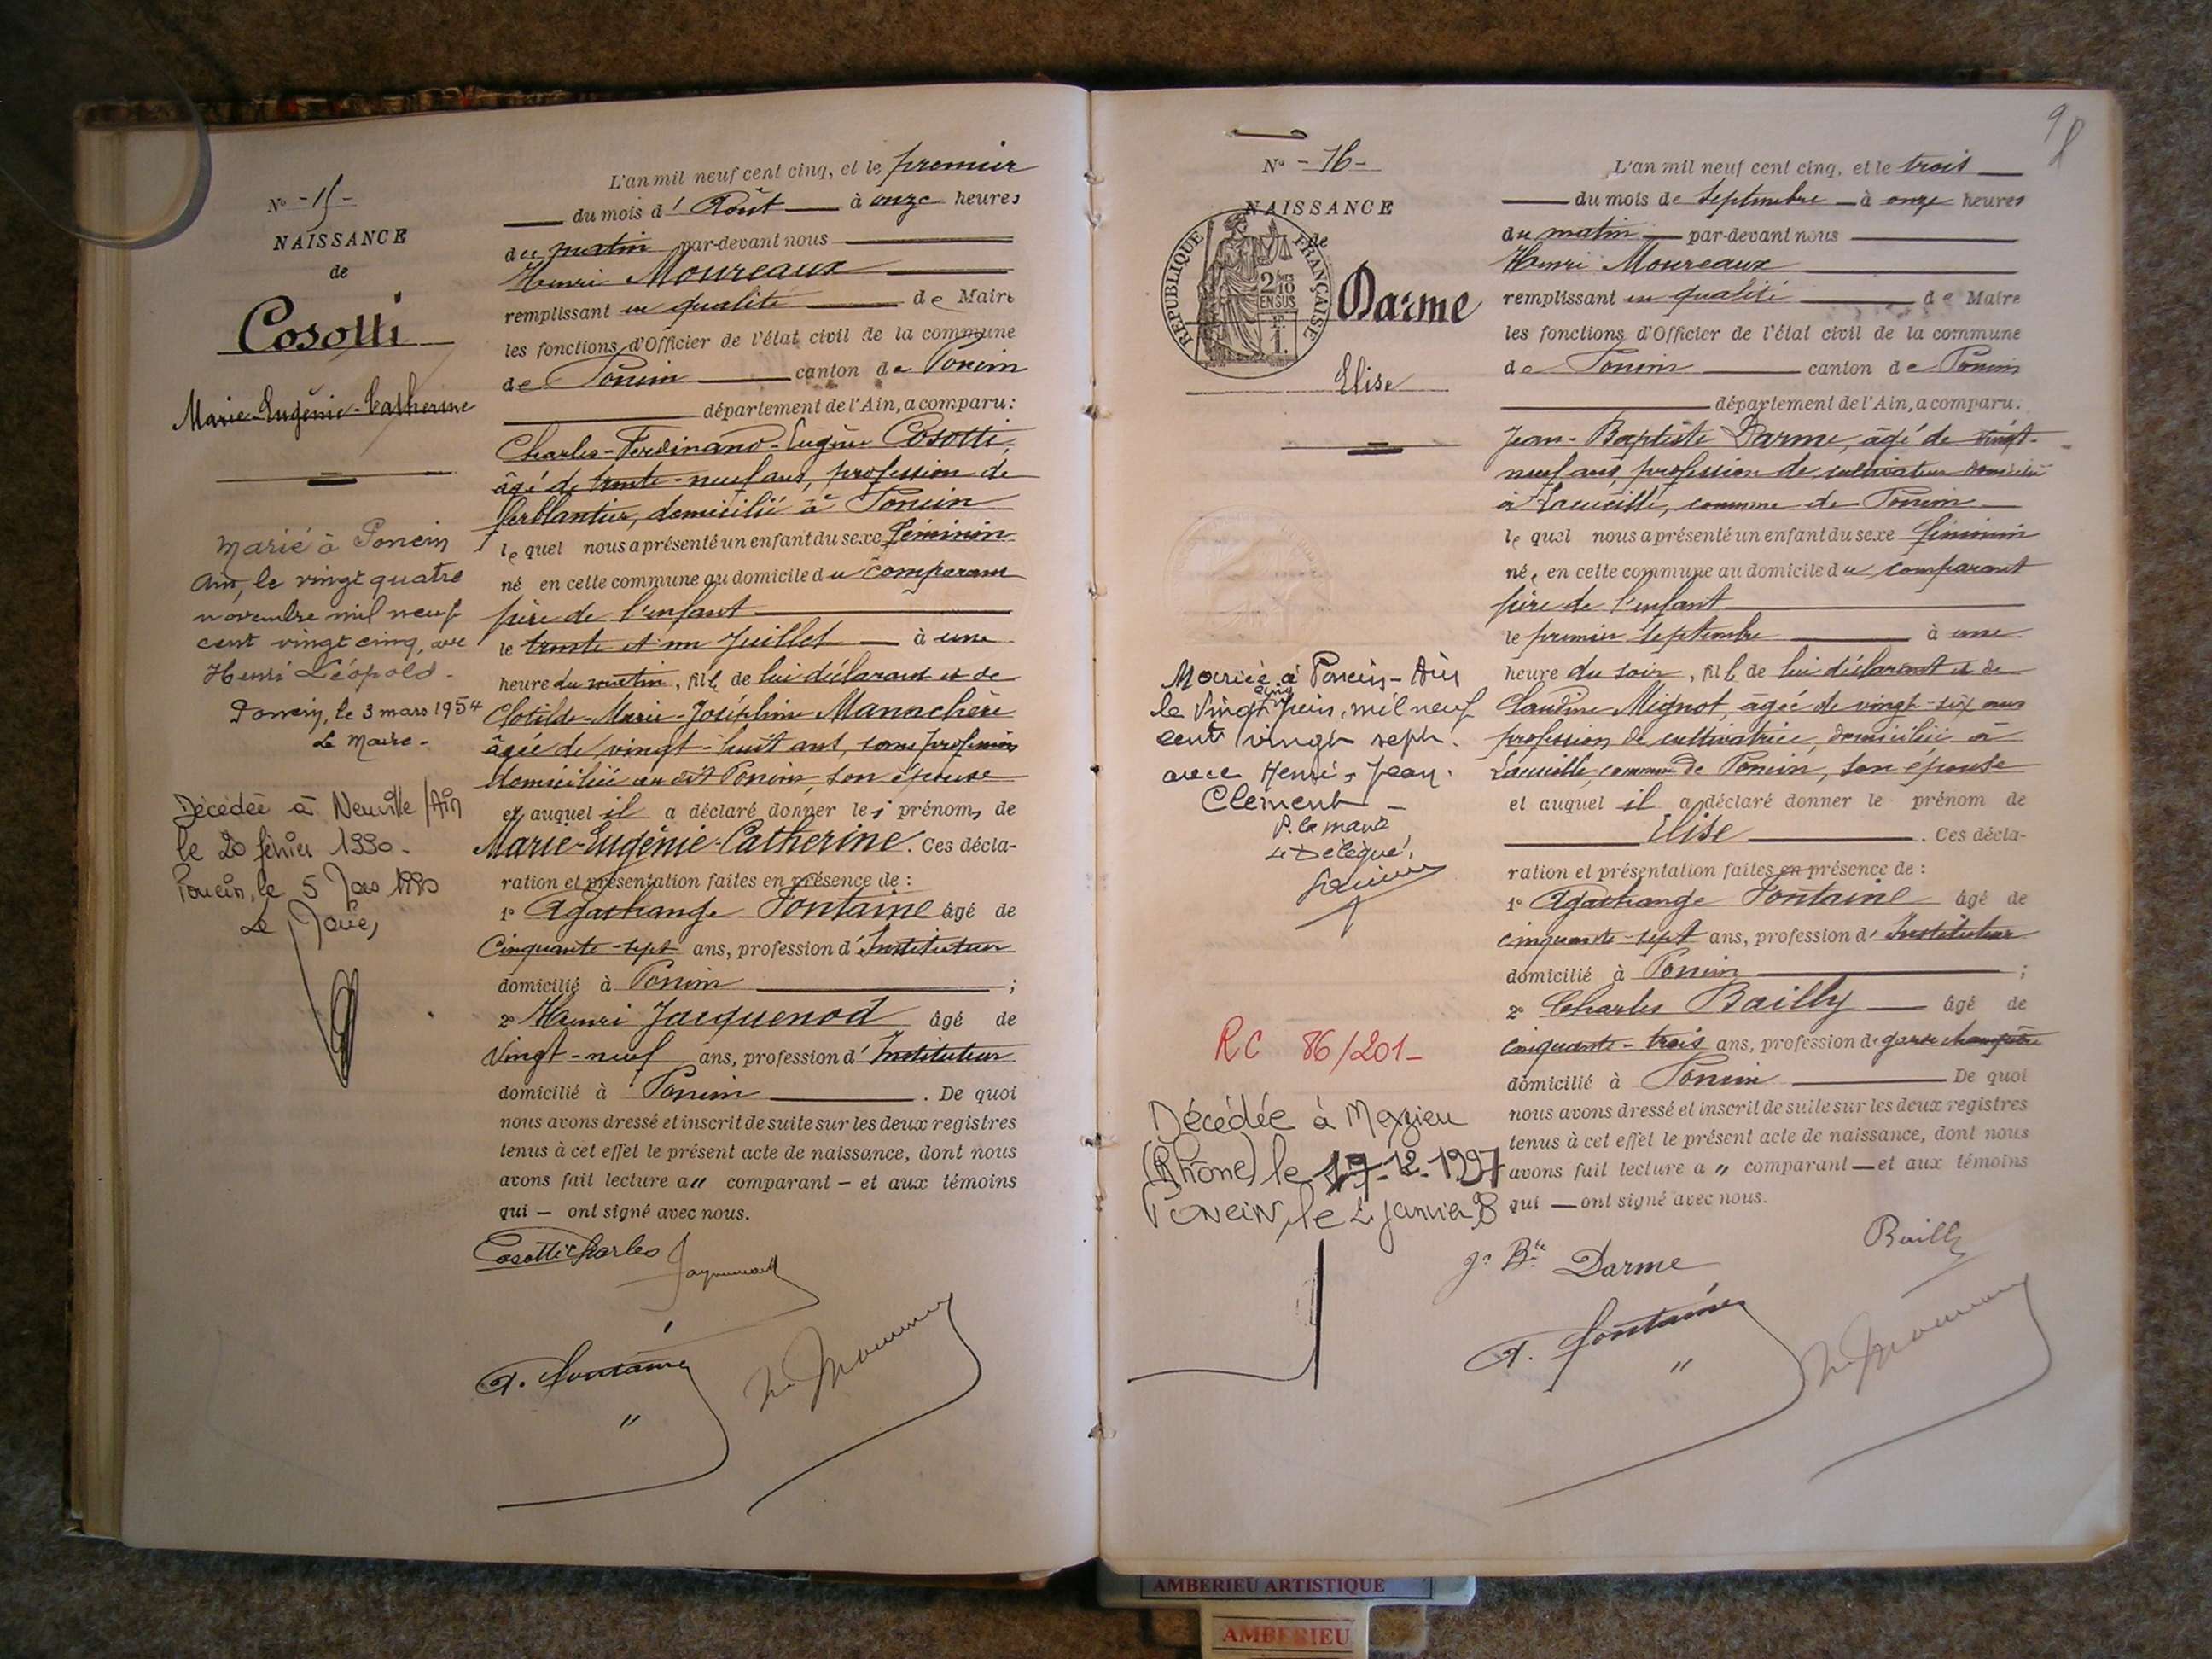 Nº - 15 -
NAISSANCE
de
Cosotti
Marie-Eugénie-Catherine
Marié à Poncin
Ain, le vingt quatre
novembre mil neuf
cent vingt cinq, ave
Henri Léopold.
Poncin, le 3 mars 1954
Le Maire.
Décédée à Neuville/Ain
le 20 février 1990.
Poncin, le 5 1990
Le
L'an mil neuf cent cinq, et le premier
du mois d' Août à onze heures
du matin par-devant nous
Henri Moureaux
remplissant en qualité de Maire
les fonctions d'Officier de l'état civil de la commune
de Poncin canton de Poncin
département de l'Ain, a comparu:
Charles-Ferdinand-Eugène Cosotti,
âgé de trente-neuf ans, profession de
ferblantier, domicilié à Poncin
lequel nous a présenté un enfant du sexe féminin
né en cette commune au domicile du comparant
père de l'enfant
le trente et un Juillet à une
heure du matin, fille de lui déclarant et de
Clotilde-Marie-Joséphine Mannchère
âgée de vingt-huit ans, sans profession
domiciliée au dit Poncin, son épouse
et auquel il a déclaré donner les prénoms de
Marie-Eugénie-Catherine. Ces décla-
ration et présentation faites en présence de :
1º Agathange Fontaine âgé de
Cinquante-sept ans, profession d'Instituteur
domicilié à Poncin ;
2º Henri Jacquenod âgé de
Vingt-neuf ans, profession d'Instituteur
domicilié à Poncin . De quoi
nous avons dressé et inscrit de suite sur les deux registres
tenus à cet effet le présent acte de naissance, dont nous
avons fait lecture a" comparant - et aux témoins
qui - ont signé avec nous.
Cosotti Charles
Jacquenod
A. Fontaine
98
Nº - 16 -
NAISSANCE
de
RÉPUBLIQUE FRANÇAISE
2/10
EN SUS
1.
Darme
Elise
Mariée à Poncin - Ain
le vingt cinq Juin, mil neuf
cent vingt sept.
avec Henri, Jean.
Clément -
P. le maire
Le Délégué,
RC 86/201-
Décédée à Meyzieu
(Rhône) le 17-12-1997
Poncin, le 2 janvier 98
L'an mil neuf cent cinq, et le trois
du mois de Septembre à onze heures
du matin par-devant nous
Henri Moureaux
remplissant en qualité de Maire
les fonctions d'Officier de l'état civil de la commune
de Poncin canton de Poncin
département de l'Ain, a comparu.
Jean-Baptiste Darme, âgé de vingt-
neuf ans, profession de cultivateur domicilié
à Lacueille, commune de Poncin
lequel nous a présenté un enfant du sexe féminin
né, en cette commune au domicile du comparant
père de l'enfant
le premier Septembre à une
heure du soir, fille de lui déclarant et de
Claudine Mignot, âgée de vingt-six ans
profession de cultivatrice, domiciliée à
Lacueille, commune de Poncin, son épouse
et auquel il a déclaré donner le prénom de
Elise . Ces décla-
ration et présentation faites en présence de :
1º Agathange Fontaine âgé de
cinquante-sept ans, profession d'Instituteur
domicilié à Poncin ;
2º Charles Bailly âgé de
cinquante-trois ans, profession de garde champêtre
domicilié à Poncin De quoi
nous avons dressé et inscrit de suite sur les deux registres
tenus à cet effet le présent acte de naissance, dont nous
avons fait lecture a " comparant - et aux témoins
qui - ont signé avec nous.
Bailly
Jn Bte Darme
A. Fontaine
AMBERIEU ARTISTIQUE
AMBERIEU